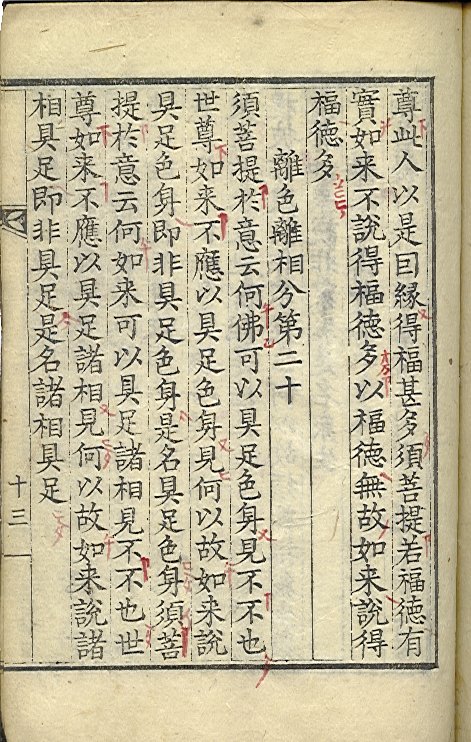 尊此人以是因緣得福甚多須菩提若福德有
實如来不說得福德多以福德無故如来說得
福德多
離色離相分第二十
須菩提於意云何佛可以具足色身見不不也
世尊如来不應以具足色身見何以故如来說
具足色身即非具足色身是名具足色身須菩
提於意云何如来可以具足諸相見不不也世
尊如来不應以具足諸相見何以故如来說諸
相具足即非具足是名諸相具足
十三